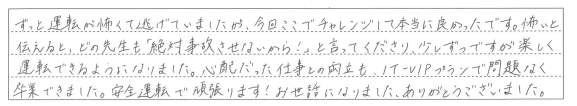 ずっと運転が怖くて逃げていましたが、今回ここでチャレンジして本当に良かったです。怖いと
伝えると、どの先生も"絶対事故させないから!"と言ってくださり、少しずつですが楽しく
運転できるようになりました。心配だった仕事との両立も、IT-VIPプランで問題なく
卒業できました。安全運転で頑張ります!お世話になりました、ありがとうございました。